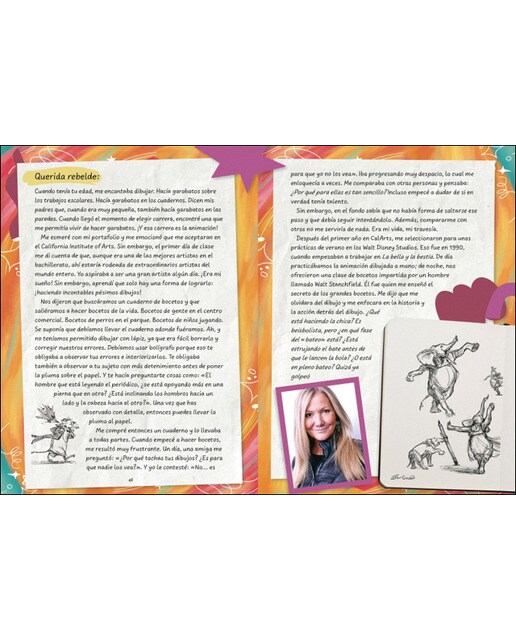 Querida rebelde:
Cuando tenía tu edad, me encantaba dibujar. Hacía garabatos sobre
los trabajos escolares. Hacía garabatos en los cuadernos. Dicen mis
padres que, cuando era muy pequeña, también hacía garabatos en las
paredes. Cuando llegó el momento de elegir carrera, encontré una que
me permitía vivir de hacer garabatos. ¡Y esa carrera es la animación!
Me esmeré con mi portafolio y me emocioné que me aceptaran en
el California Institute of Arts. Sin embargo, el primer día de clase
me di cuenta de que, aunque era una de las mejores artistas en el
bachillerato, ahí estaría rodeada de extraordinarios artistas del
mundo entero. Yo aspiraba a ser una gran artista algún día. ¡Era mi
sueño! Sin embargo, aprendí que solo hay una forma de lograrlo:
¡haciendo incontables pésimos dibujos!
Nos dijeron que buscáramos un cuaderno de bocetos y que
saliéramos a hacer bocetos de la vida. Bocetos de gente en el centro
comercial. Bocetos de perros en el parque. Bocetos de niños jugando.
Se suponía que debíamos llevar el cuaderno adonde fuéramos. Ah, y
no teníamos permitido dibujar con lápiz, ya que era fácil borrarlo y
corregir nuestros errores. Debíamos usar bolígrafo porque eso te
obligaba a observar tus errores e interiorizarlos. Te obligaba
también a observar a tu sujeto con más detenimiento antes de poner
la pluma sobre el papel. Y te hacía preguntarte cosas como: «El
hombre que está leyendo el periódico, ¿se está apoyando más en una
pierna que en otra? ¿Está inclinando los hombros hacia un
lado y la cabeza hacia el otro?». Una vez que has
observado con detalle, entonces puedes llevar la
pluma al papel.
Me compré entonces un cuaderno y lo llevaba
a todas partes. Cuando empecé a hacer bocetos,
me resultó muy frustrante. Un día, una amiga me
preguntó: «¿Por qué tachas tus dibujos? ¿Es para
que nadie los vea?». Y yo le contesté: «No... es
para que yo no los vea». Iba progresando muy despacio, lo cual me
enloquecía a veces. Me comparaba con otras personas y pensaba:
¿Por qué para ellas es tan sencillo? Incluso empecé a dudar de si en
verdad tenía talento.
Sin embargo, en el fondo sabía que no había forma de saltarse ese
paso y que debía seguir intentándolo. Además, compararme con
otros no me serviría de nada. Era mi vida, mi travesía.
Después del primer año en CalArts, me seleccionaron para unas
prácticas de verano en los Walt Disney Studios. Eso fue en 1990,
cuando empezaban a trabajar en La bella y la bestia. De día
practicábamos la animación dibujada a mano; de noche, nos
ofrecieron una clase de bocetos impartida por un hombre
llamado Walt Stanchfield. Él fue quien me enseñó el
secreto de los grandes bocetos. Me dijo que me
olvidara del dibujo y me enfocara en la historia y
la acción detrás del dibujo. ¿Qué
está haciendo la chica? Es
beisbolista, pero ¿en qué fase
del «bateo» está? ¿Está
estrujando el bate antes de
que le lancen la bola? ¿O está
en pleno bateo? Quizá ya
golpeó